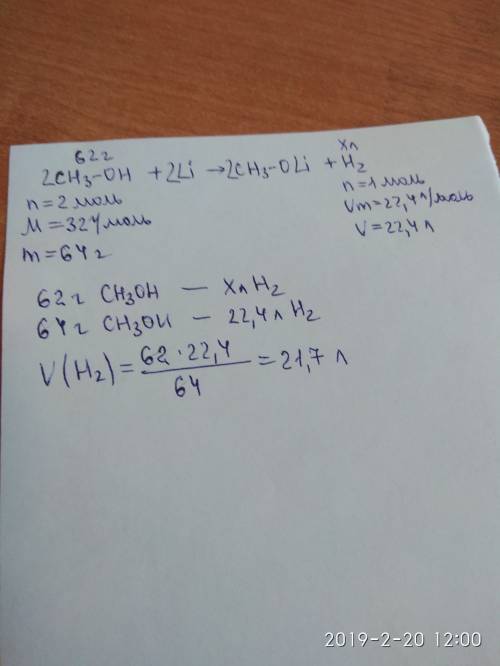 62г хл
2CH₃-OH + 2Li → 2CH₃-OLi + H₂
n = 2 моль n = 1 моль
M = 32 г/моль Vm = 22,4 л/моль
m = 64 г V = 22,4 л
62г CH₃OH — хл H₂
64г CH₃OH — 22,4 л H₂
V(H₂) = 62 · 22,4 / 64 = 21,7 л
2019-2-20 12:00